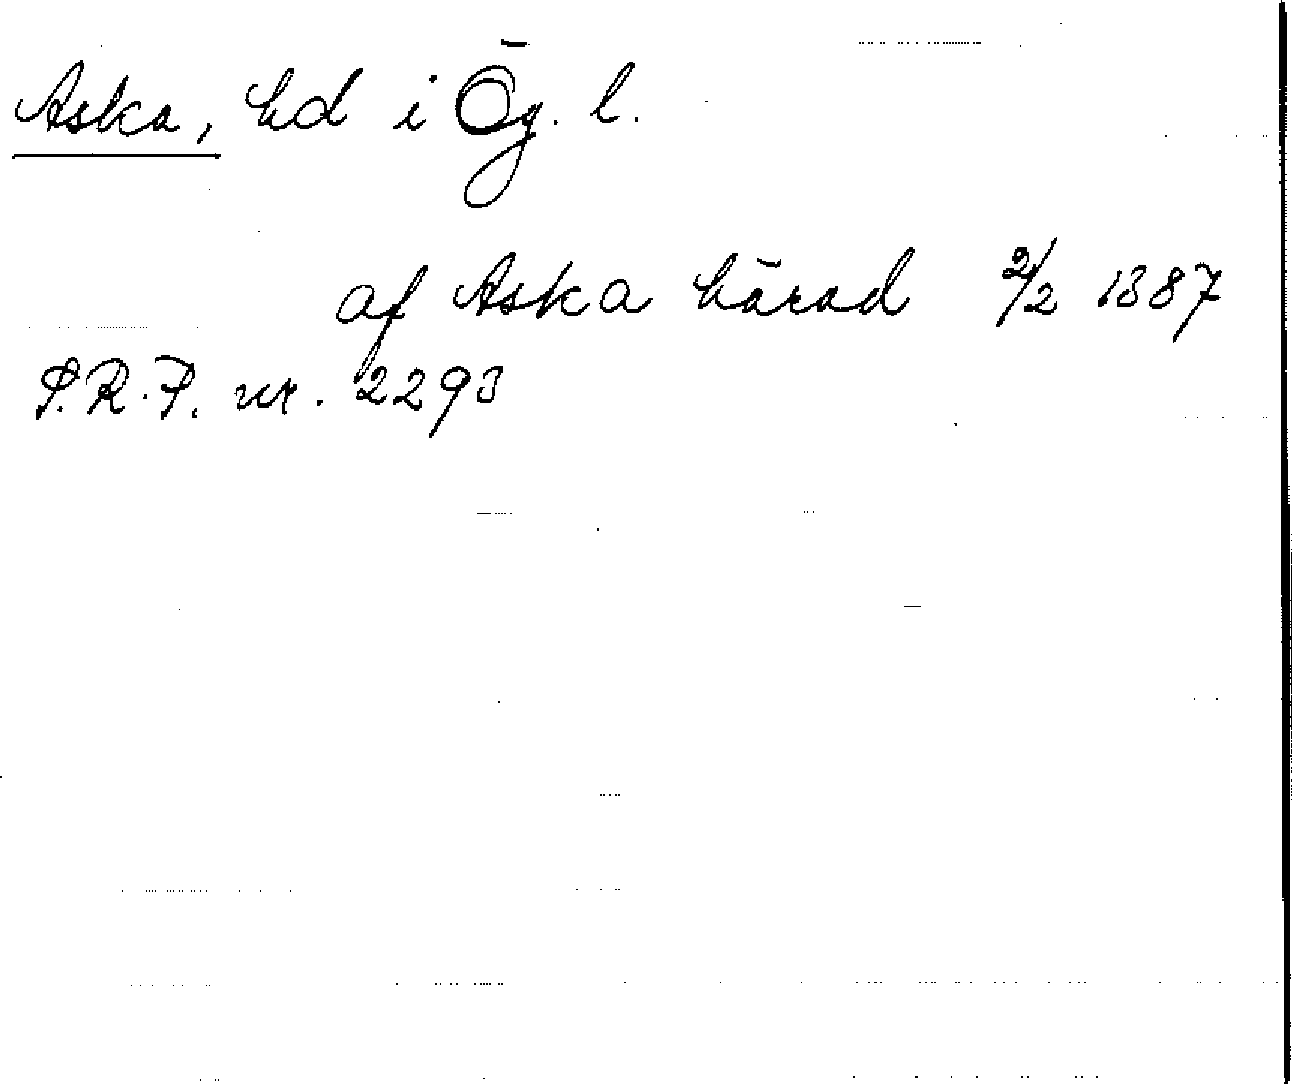 Aska, hd i Ög. l.
af Aska härad 2/2 1387
S.R.P. nr. 2293